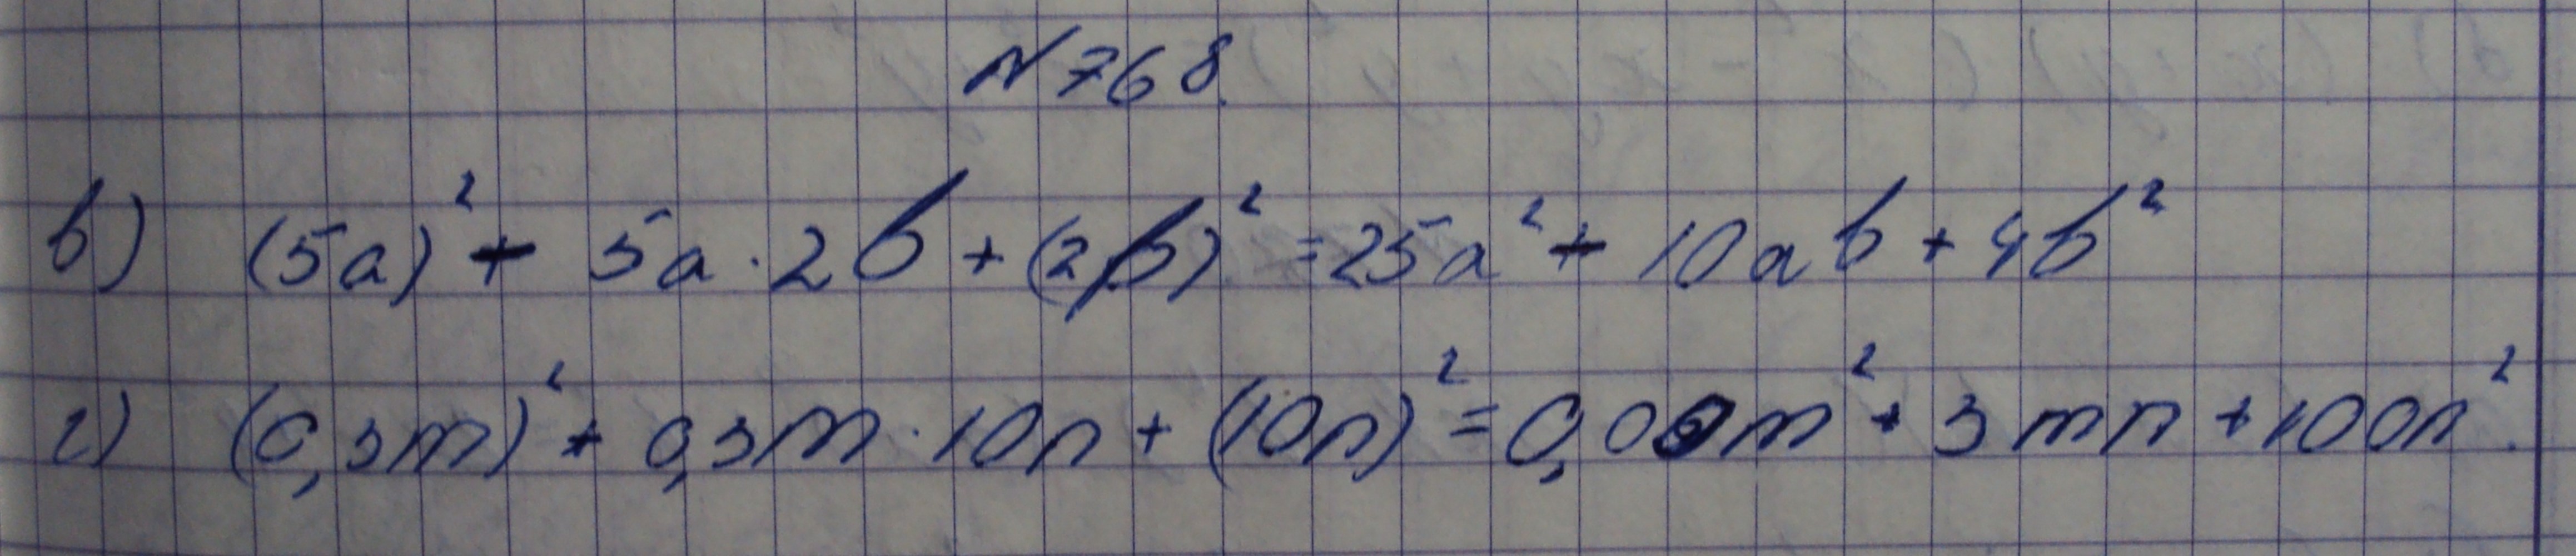 №768.
в) (5a)² + 5a · 2b + (2b)² = 25a² + 10ab + 4b²
г) (0,3m)² + 0,3m · 10n + (10n)² = 0,09m² + 3mn + 100n².